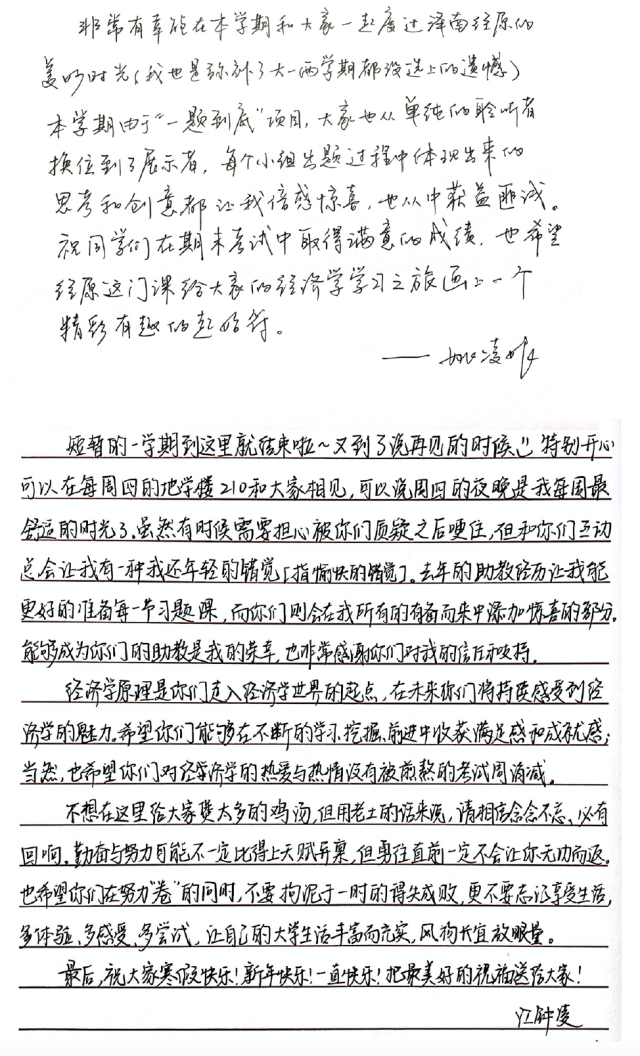 非常有幸能在本学期和大家一起度过泽南经原的
美妙时光(我也是弥补了大一两学期都没选上的遗憾)
本学期由于“一题到底”项目,大家也从单纯的聆听者
换位到了展示者,每个小组出题过程中体现出来的
思考和创意都让我倍感惊喜,也从中获益匪浅。
祝同学们在期末考试中取得满意的成绩,也希望
经原这门课给大家的经济学学习之旅画上一个
精彩有趣的起始符。
短暂的一学期到这里就结束啦~又到了说再见的时候,特别开心
可以在每周四的地学楼210和大家相见,可以说周四的夜晚是我每周最
舒适的时光了.虽然有时候需要担心被你们质疑之后哽住,但和你们互动
总会让我有一种我还年轻的错觉[指愉快的错觉].去年的助教经历让我能
更好的准备每一节习题课,而你们则会在我所有的有备而来中添加惊喜的部分.
能够成为你们的助教是我的荣幸,也非常感谢你们对我的信任和支持.
经济学原理是你们走入经济学世界的起点,在未来你们将持续感受到经
济学的魅力.希望你们能够在不断的学习、挖掘、前进中收获满足感和成就感;
当然,也希望你们对经济学的热爱与热情没有被煎熬的考试周消减.
不想在这里给大家煲太多的鸡汤,但用老土的话来说,请相信念念不忘,必有
回响.勤奋与努力可能不一定比得上天赋异禀,但勇往直前一定不会让你无功而返.
也希望你们在努力“卷”的同时,不要拘泥于一时的得失成败,更不要忘记享受生活,
多体验、多感受、多尝试,让自己的大学生活丰富而充实,风物长宜放眼量.
最后,祝大家寒假快乐!新年快乐!一直快乐!把最美好的祝福送给大家!
江钟凌